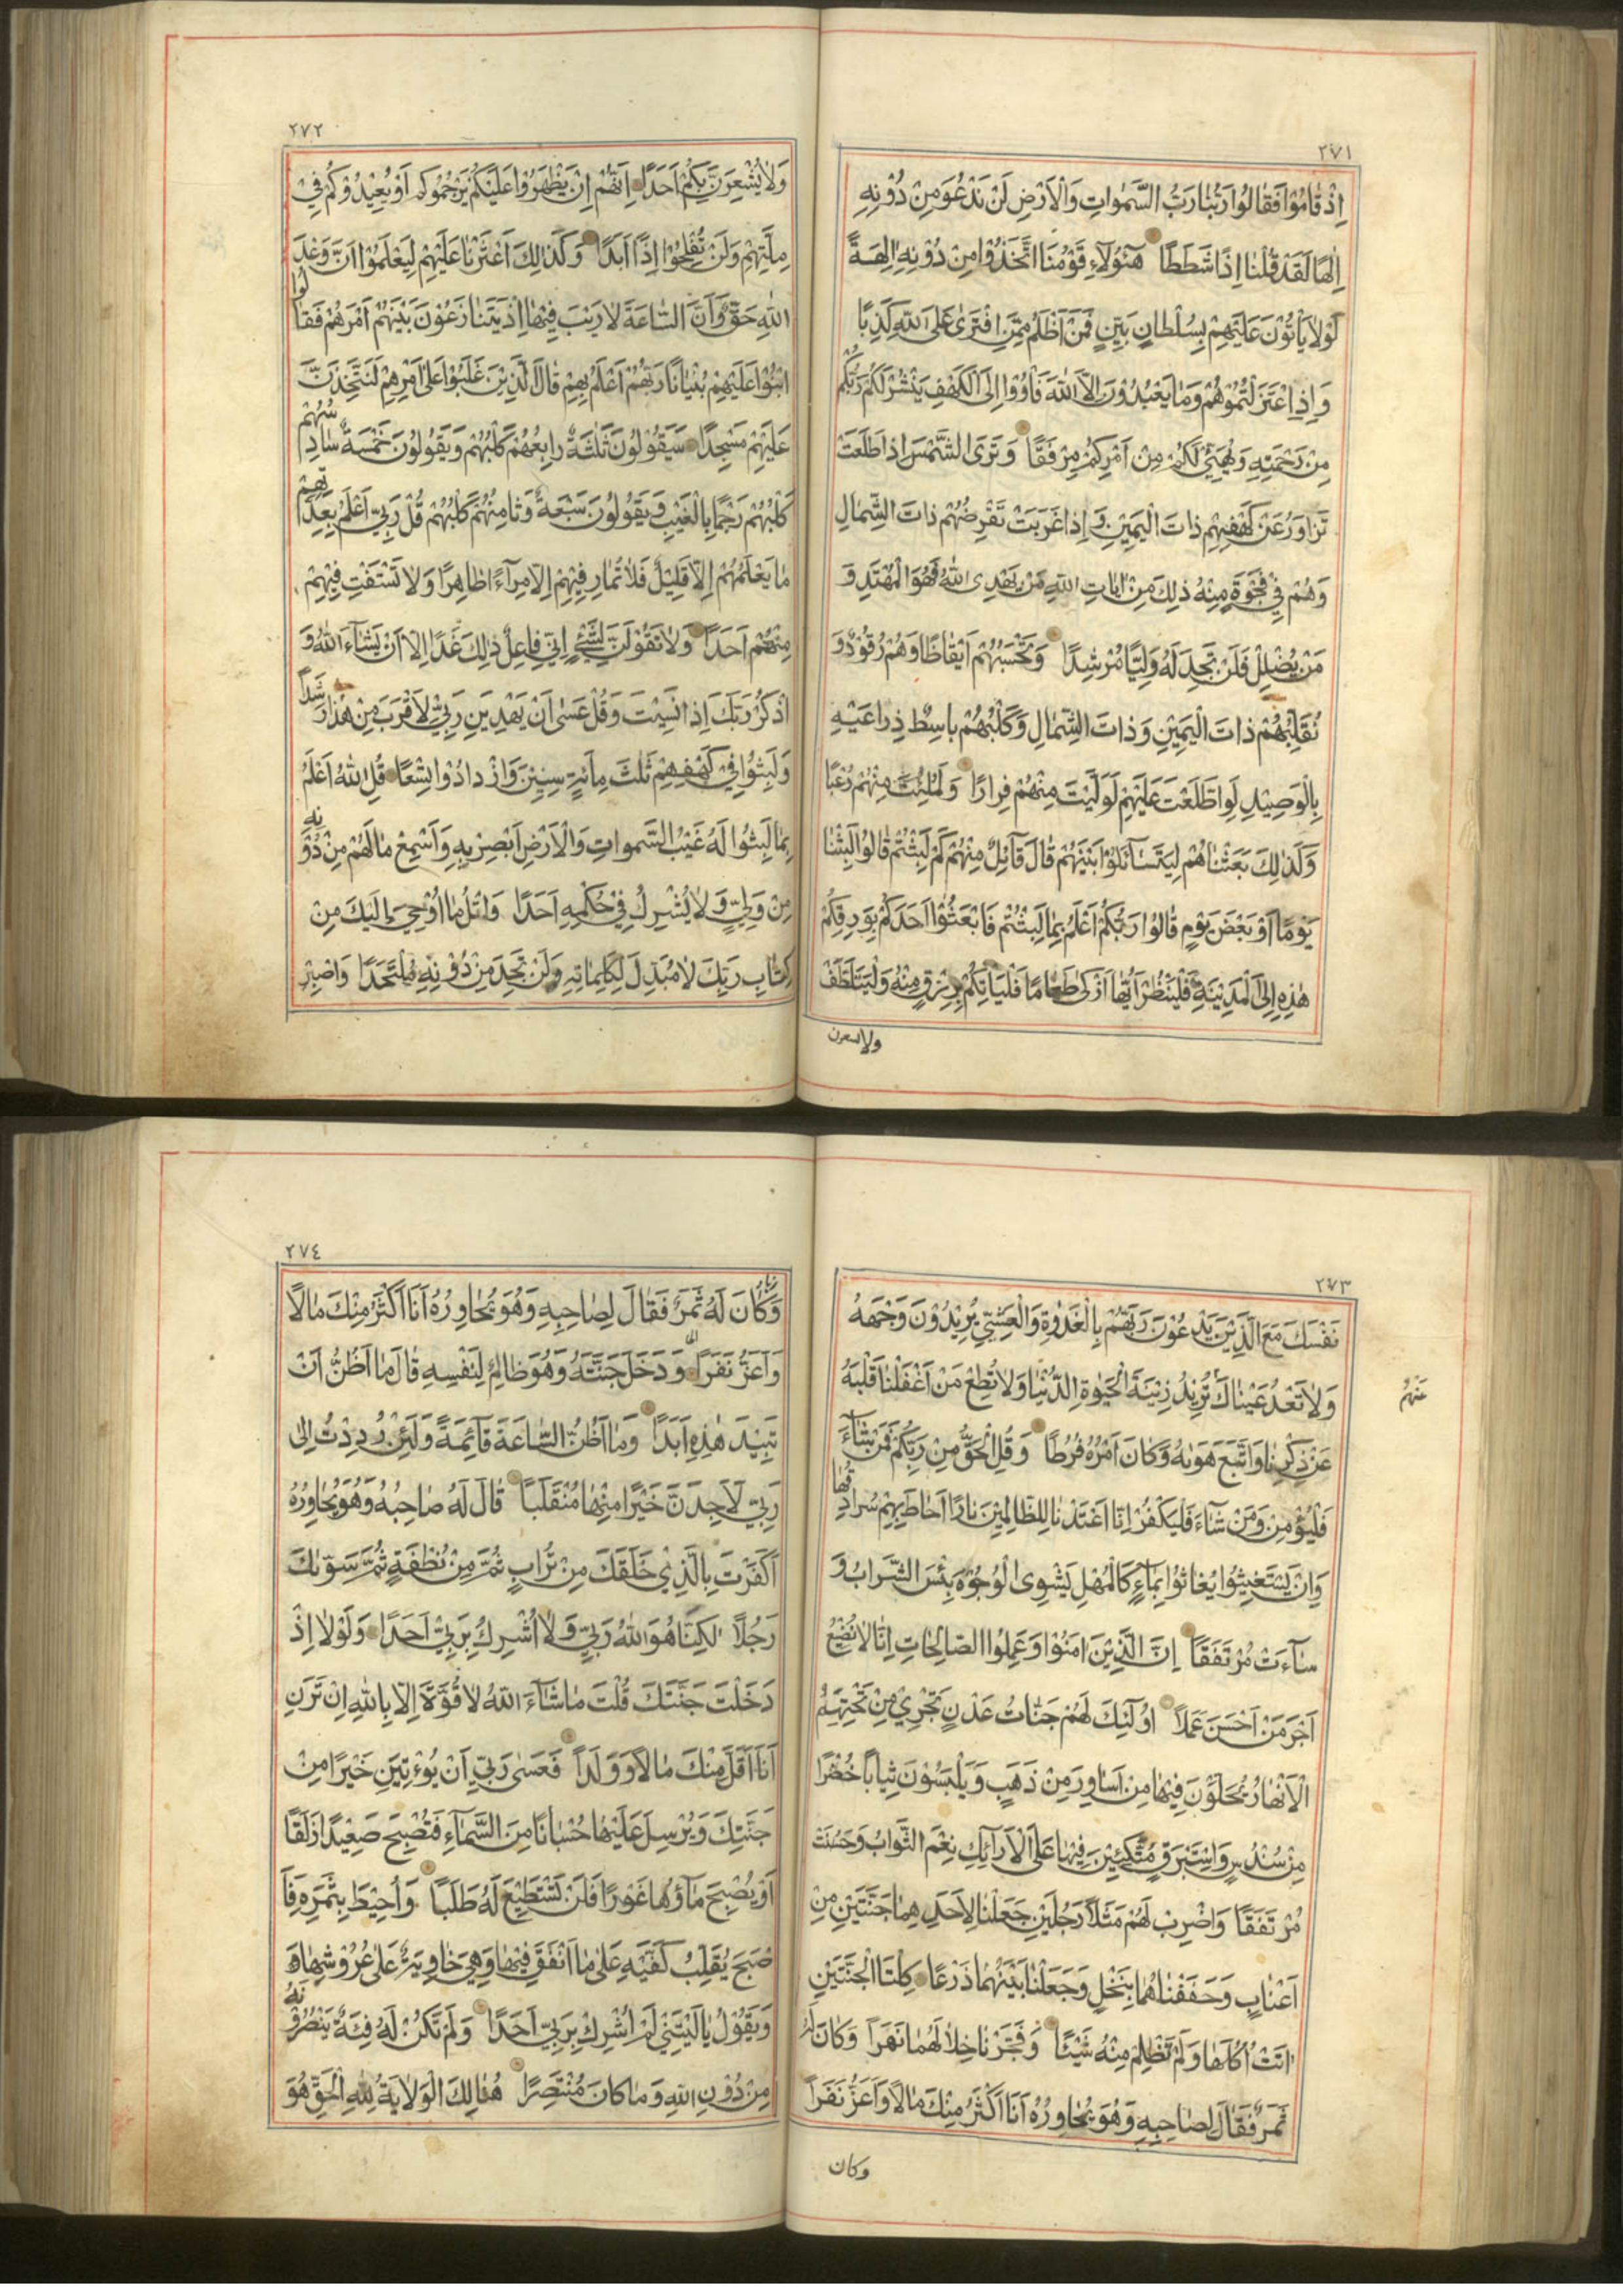 ٢٧١
اِذْ قٰامُوْا فَقٰالُوا رَبُّنٰا رَبُّ السَّمٰوٰاتِ وَالْاَرْضِ لَنْ نَدْعُوَ مِنْ دُوْنِهِ
اِلٰهًا لَقَدْ قُلْنٰا اِذًا شَطَطًا هٰٓؤُلٰاءِ قَوْمُنَا اتَّخَذُوْا مِنْ دُوْنِهِ اٰلِهَةً
لَوْلٰا يَأْتُوْنَ عَلَيْهِمْ بِسُلْطٰانٍ بَيِّنٍ فَمَنْ اَظْلَمُ مِمَّنِ افْتَرٰى عَلَى اللّٰهِ كَذِبًا
وَاِذِ اعْتَزَلْتُمُوْهُمْ وَمٰا يَعْبُدُوْنَ اِلَّا اللّٰهَ فَأْوُوْا اِلَى الْكَهْفِ يَنْشُرْ لَكُمْ رَبُّكُمْ
مِنْ رَحْمَتِهِ وَيُهَيِّئْ لَكُمْ مِنْ اَمْرِكُمْ مِرْفَقًا وَتَرَى الشَّمْسَ اِذٰا طَلَعَتْ
تَزٰاوَرُ عَنْ كَهْفِهِمْ ذٰاتَ الْيَمِيْنِ وَاِذٰا غَرَبَتْ تَقْرِضُهُمْ ذٰاتَ الشِّمٰالِ
وَهُمْ فِيْ فَجْوَةٍ مِنْهُ ذٰلِكَ مِنْ اٰيٰاتِ اللّٰهِ مَنْ يَهْدِى اللّٰهُ فَهُوَ الْمُهْتَدِ وَ
مَنْ يُضْلِلْ فَلَنْ تَجِدَ لَهُ وَلِيًّا مُرْشِدًا وَتَحْسَبُهُمْ اَيْقٰاظًا وَهُمْ رُقُوْدٌ وَ
نُقَلِّبُهُمْ ذٰاتَ الْيَمِيْنِ وَذٰاتَ الشِّمٰالِ وَكَلْبُهُمْ بٰاسِطٌ ذِرٰاعَيْهِ
بِالْوَصِيْدِ لَوِ اطَّلَعْتَ عَلَيْهِمْ لَوَلَّيْتَ مِنْهُمْ فِرٰارًا وَلَمُلِئْتَ مِنْهُمْ رُعْبًا
وَكَذٰلِكَ بَعَثْنٰاهُمْ لِيَتَسٰآئَلُوْا بَيْنَهُمْ قٰالَ قٰآئِلٌ مِنْهُمْ كَمْ لَبِثْتُمْ قٰالُوْا لَبِثْنٰا
يَوْمًا اَوْ بَعْضَ يَوْمٍ قٰالُوْا رَبُّكُمْ اَعْلَمُ بِمٰا لَبِثْتُمْ فَابْعَثُوْا اَحَدَكُمْ بِوَرِقِكُمْ
هٰذِهِ اِلَى الْمَدِيْنَةِ فَلْيَنْظُرْ اَيُّهٰا اَزْكٰى طَعٰامًا فَلْيَأْتِكُمْ بِرِزْقٍ مِنْهُ وَلْيَتَلَطَّفْ
ولا يشعرن
٢٧٢
وَلٰا يُشْعِرَنَّ بِكُمْ اَحَدًا اِنَّهُمْ اِنْ يَظْهَرُوْا عَلَيْكُمْ يَرْجُمُوكُمْ اَوْ يُعِيْدُوْكُمْ فِيْ
مِلَّتِهِمْ وَلَنْ تُفْلِحُوْا اِذًا اَبَدًا وَكَذٰلِكَ اَعْثَرْنٰا عَلَيْهِمْ لِيَعْلَمُوْا اَنَّ وَعْدَ
اللّٰهِ حَقٌّ وَاَنَّ السّٰاعَةَ لٰا رَيْبَ فِيْهٰا اِذْ يَتَنٰازَعُوْنَ بَيْنَهُمْ اَمْرَهُمْ فَقٰالُوا
ابْنُوْا عَلَيْهِمْ بُنْيٰانًا رَبُّهُمْ اَعْلَمُ بِهِمْ قٰالَ الَّذِيْنَ غَلَبُوْا عَلٰى اَمْرِهِمْ لَنَتَّخِذَنَّ
عَلَيْهِمْ مَسْجِدًا سَيَقُوْلُوْنَ ثَلٰثَةٌ رٰابِعُهُمْ كَلْبُهُمْ وَيَقُوْلُوْنَ خَمْسَةٌ سٰادِسُهُمْ
كَلْبُهُمْ رَجْمًا بِالْغَيْبِ وَيَقُوْلُوْنَ سَبْعَةٌ وَثٰامِنُهُمْ كَلْبُهُمْ قُلْ رَبِّيْ اَعْلَمُ بِعِدَّتِهِمْ
مٰا يَعْلَمُهُمْ اِلّٰا قَلِيْلٌ فَلٰا تُمٰارِ فِيْهِمْ اِلّٰا مِرٰآءً ظٰاهِرًا وَلٰا تَسْتَفْتِ فِيْهِمْ
مِنْهُمْ اَحَدًا وَلٰا تَقُوْلَنَّ لِشَيْءٍ اِنِّيْ فٰاعِلٌ ذٰلِكَ غَدًا اِلّٰا اَنْ يَشٰآءَ اللّٰهُ وَ
اذْكُرْ رَبَّكَ اِذٰا نَسِيْتَ وَقُلْ عَسٰى اَنْ يَهْدِيَنِ رَبِّيْ لِاَقْرَبَ مِنْ هٰذٰا رَشَدًا
وَلَبِثُوْا فِيْ كَهْفِهِمْ ثَلٰثَ مِأَئَةٍ سِنِيْنَ وَازْدٰادُوْا تِسْعًا قُلِ اللّٰهُ اَعْلَمُ
بِمٰا لَبِثُوْا لَهُ غَيْبُ السَّمٰوٰاتِ وَالْاَرْضِ اَبْصِرْ بِهِ وَاَسْمِعْ مٰا لَهُمْ مِنْ دُوْنِهِ
مِنْ وَلِيٍّ وَلٰا يُشْرِكُ فِيْ حُكْمِهِ اَحَدًا وَاتْلُ مٰا اُوْحِيَ اِلَيْكَ مِنْ
كِتٰابِ رَبِّكَ لٰا مُبَدِّلَ لِكَلِمٰاتِهِ وَلَنْ تَجِدَ مِنْ دُوْنِهِ مُلْتَحَدًا وَاصْبِرْ
٢٧٣
نَفْسَكَ مَعَ الَّذِيْنَ يَدْعُوْنَ رَبَّهُمْ بِالْغَدٰوةِ وَالْعَشِيِّ يُرِيْدُوْنَ وَجْهَهُ
وَلٰا تَعْدُ عَيْنٰاكَ تُرِيْدُ زِيْنَةَ الْحَيٰوةِ الدُّنْيٰا وَلٰا تُطِعْ مَنْ اَغْفَلْنٰا قَلْبَهُ
عَنْهُمْ
عَنْ ذِكْرِنٰا وَاتَّبَعَ هَوٰيهُ وَكٰانَ اَمْرُهُ فُرُطًا وَقُلِ الْحَقُّ مِنْ رَبِّكُمْ فَمَنْ شٰآءَ
فَلْيُؤْمِنْ وَمَنْ شٰآءَ فَلْيَكْفُرْ اِنّٰا اَعْتَدْنٰا لِلظّٰالِمِيْنَ نٰارًا اَحٰاطَ بِهِمْ سُرٰادِقُهٰا
وَاِنْ يَسْتَغِيْثُوْا يُغٰاثُوْا بِمٰآءٍ كَالْمُهْلِ يَشْوِى الْوُجُوْهَ بِئْسَ الشَّرٰابُ وَ
سٰآءَتْ مُرْتَفَقًا اِنَّ الَّذِيْنَ اٰمَنُوْا وَعَمِلُوا الصّٰالِحٰاتِ اِنّٰا لٰا نُضِيْعُ
اَجْرَ مَنْ اَحْسَنَ عَمَلًا اُولٰٓئِكَ لَهُمْ جَنّٰاتُ عَدْنٍ تَجْرِيْ مِنْ تَحْتِهِمُ
الْاَنْهٰارُ يُحَلَّوْنَ فِيْهٰا مِنْ اَسٰاوِرَ مِنْ ذَهَبٍ وَيَلْبَسُوْنَ ثِيٰابًا خُضْرًا
مِنْ سُنْدُسٍ وَاِسْتَبْرَقٍ مُتَّكِئِيْنَ فِيْهٰا عَلَى الْاَرٰآئِكِ نِعْمَ الثَّوٰابُ وَحَسُنَتْ
مُرْتَفَقًا وَاضْرِبْ لَهُمْ مَثَلًا رَجُلَيْنِ جَعَلْنٰا لِاَحَدِهِمٰا جَنَّتَيْنِ مِنْ
اَعْنٰابٍ وَحَفَفْنٰاهُمٰا بِنَخْلٍ وَجَعَلْنٰا بَيْنَهُمٰا زَرْعًا كِلْتَا الْجَنَّتَيْنِ
اٰتَتْ اُكُلَهٰا وَلَمْ تَظْلِمْ مِنْهُ شَيْئًا وَفَجَّرْنٰا خِلٰالَهُمٰا نَهَرًا وَكٰانَ لَهُ
ثَمَرٌ فَقٰالَ لِصٰاحِبِهِ وَهُوَ يُحٰاوِرُهُ اَنَا اَكْثَرُ مِنْكَ مٰالًا وَاَعَزُّ نَفَرًا
وكان
٢٧٤
وَكٰانَ لَهُ ثَمَرٌ فَقٰالَ لِصٰاحِبِهِ وَهُوَ يُحٰاوِرُهُ اَنَا اَكْثَرُ مِنْكَ مٰالًا
وَاَعَزُّ نَفَرًا وَدَخَلَ جَنَّتَهُ وَهُوَ ظٰالِمٌ لِنَفْسِهِ قٰالَ مٰا اَظُنُّ اَنْ
تَبِيْدَ هٰذِهِ اَبَدًا وَمٰا اَظُنُّ السّٰاعَةَ قٰآئِمَةً وَلَئِنْ رُدِدْتُ اِلٰى
رَبِّيْ لَاَجِدَنَّ خَيْرًا مِنْهٰا مُنْقَلَبًا قٰالَ لَهُ صٰاحِبُهُ وَهُوَ يُحٰاوِرُهُ
اَكَفَرْتَ بِالَّذِيْ خَلَقَكَ مِنْ تُرٰابٍ ثُمَّ مِنْ نُطْفَةٍ ثُمَّ سَوّٰيكَ
رَجُلًا لٰكِنَّا هُوَ اللّٰهُ رَبِّيْ وَلٰا اُشْرِكُ بِرَبِّيْ اَحَدًا وَلَوْلٰا اِذْ
دَخَلْتَ جَنَّتَكَ قُلْتَ مٰا شٰآءَ اللّٰهُ لٰا قُوَّةَ اِلّٰا بِاللّٰهِ اِنْ تَرَنِ
اَنَا اَقَلَّ مِنْكَ مٰالًا وَوَلَدًا فَعَسٰى رَبِّيْ اَنْ يُؤْتِيَنِ خَيْرًا مِنْ
جَنَّتِكَ وَيُرْسِلَ عَلَيْهٰا حُسْبٰانًا مِنَ السَّمٰآءِ فَتُصْبِحَ صَعِيْدًا زَلَقًا
اَوْ يُصْبِحَ مٰآؤُهٰا غَوْرًا فَلَنْ تَسْتَطِيْعَ لَهُ طَلَبًا وَاُحِيْطَ بِثَمَرِهِ فَاَ
صْبَحَ يُقَلِّبُ كَفَّيْهِ عَلٰى مٰا اَنْفَقَ فِيْهٰا وَهِيَ خٰاوِيَةٌ عَلٰى عُرُوْشِهٰا
وَيَقُوْلُ يٰا لَيْتَنِيْ لَمْ اُشْرِكْ بِرَبِّيْ اَحَدًا وَلَمْ تَكُنْ لَهُ فِئَةٌ يَنْصُرُوْنَهُ
مِنْ دُوْنِ اللّٰهِ وَمٰا كٰانَ مُنْتَصِرًا هُنٰالِكَ الْوَلٰايَةُ لِلّٰهِ الْحَقِّ هُوَ